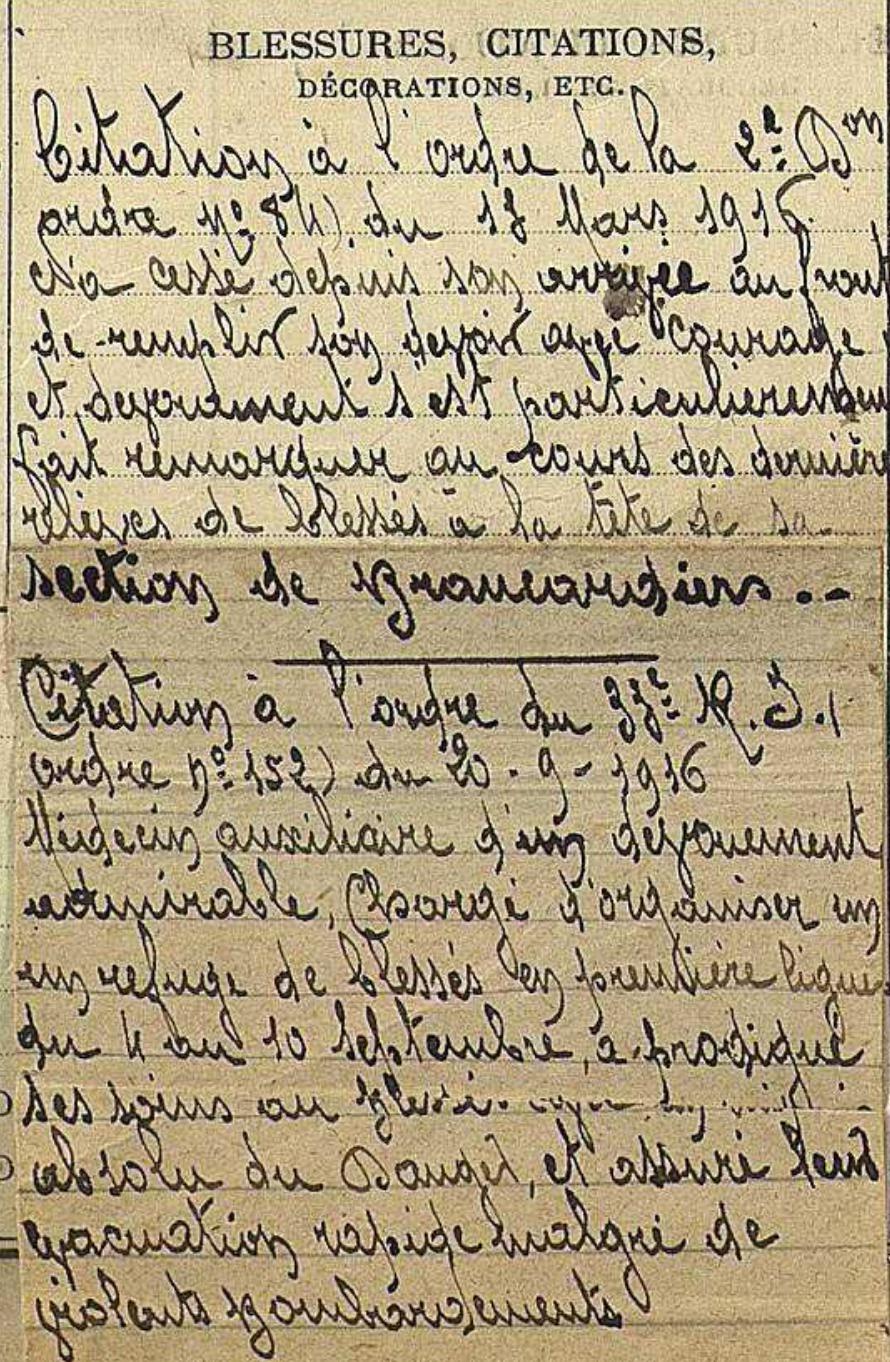 BLESSURES, CITATIONS,
DÉCORATIONS, ETC.
Citation à l'ordre de la 2e Don
ordre no 84) du 13 Mars 1916
N'a cessé depuis son arrivée au front
de remplir son devoir avec courage
et devouement s'est particulierement
fait remarquer au cours des dernière
relèves de blessés à la tête de sa
section de Brancardiers..-
Citation à l'ordre du 33e R.I. (
ordre no 152) du 20-9-1916
Médecin auxiliaire d'un dévouement
admirable, Chargé d'organiser un
un refuge de blessés en première ligne
du 4 au 10 Septembre, a prodigué
ses soins au Blessés
absolu du Danger, et assuré leur
évacuation rapide malgré de
violents Bombardements